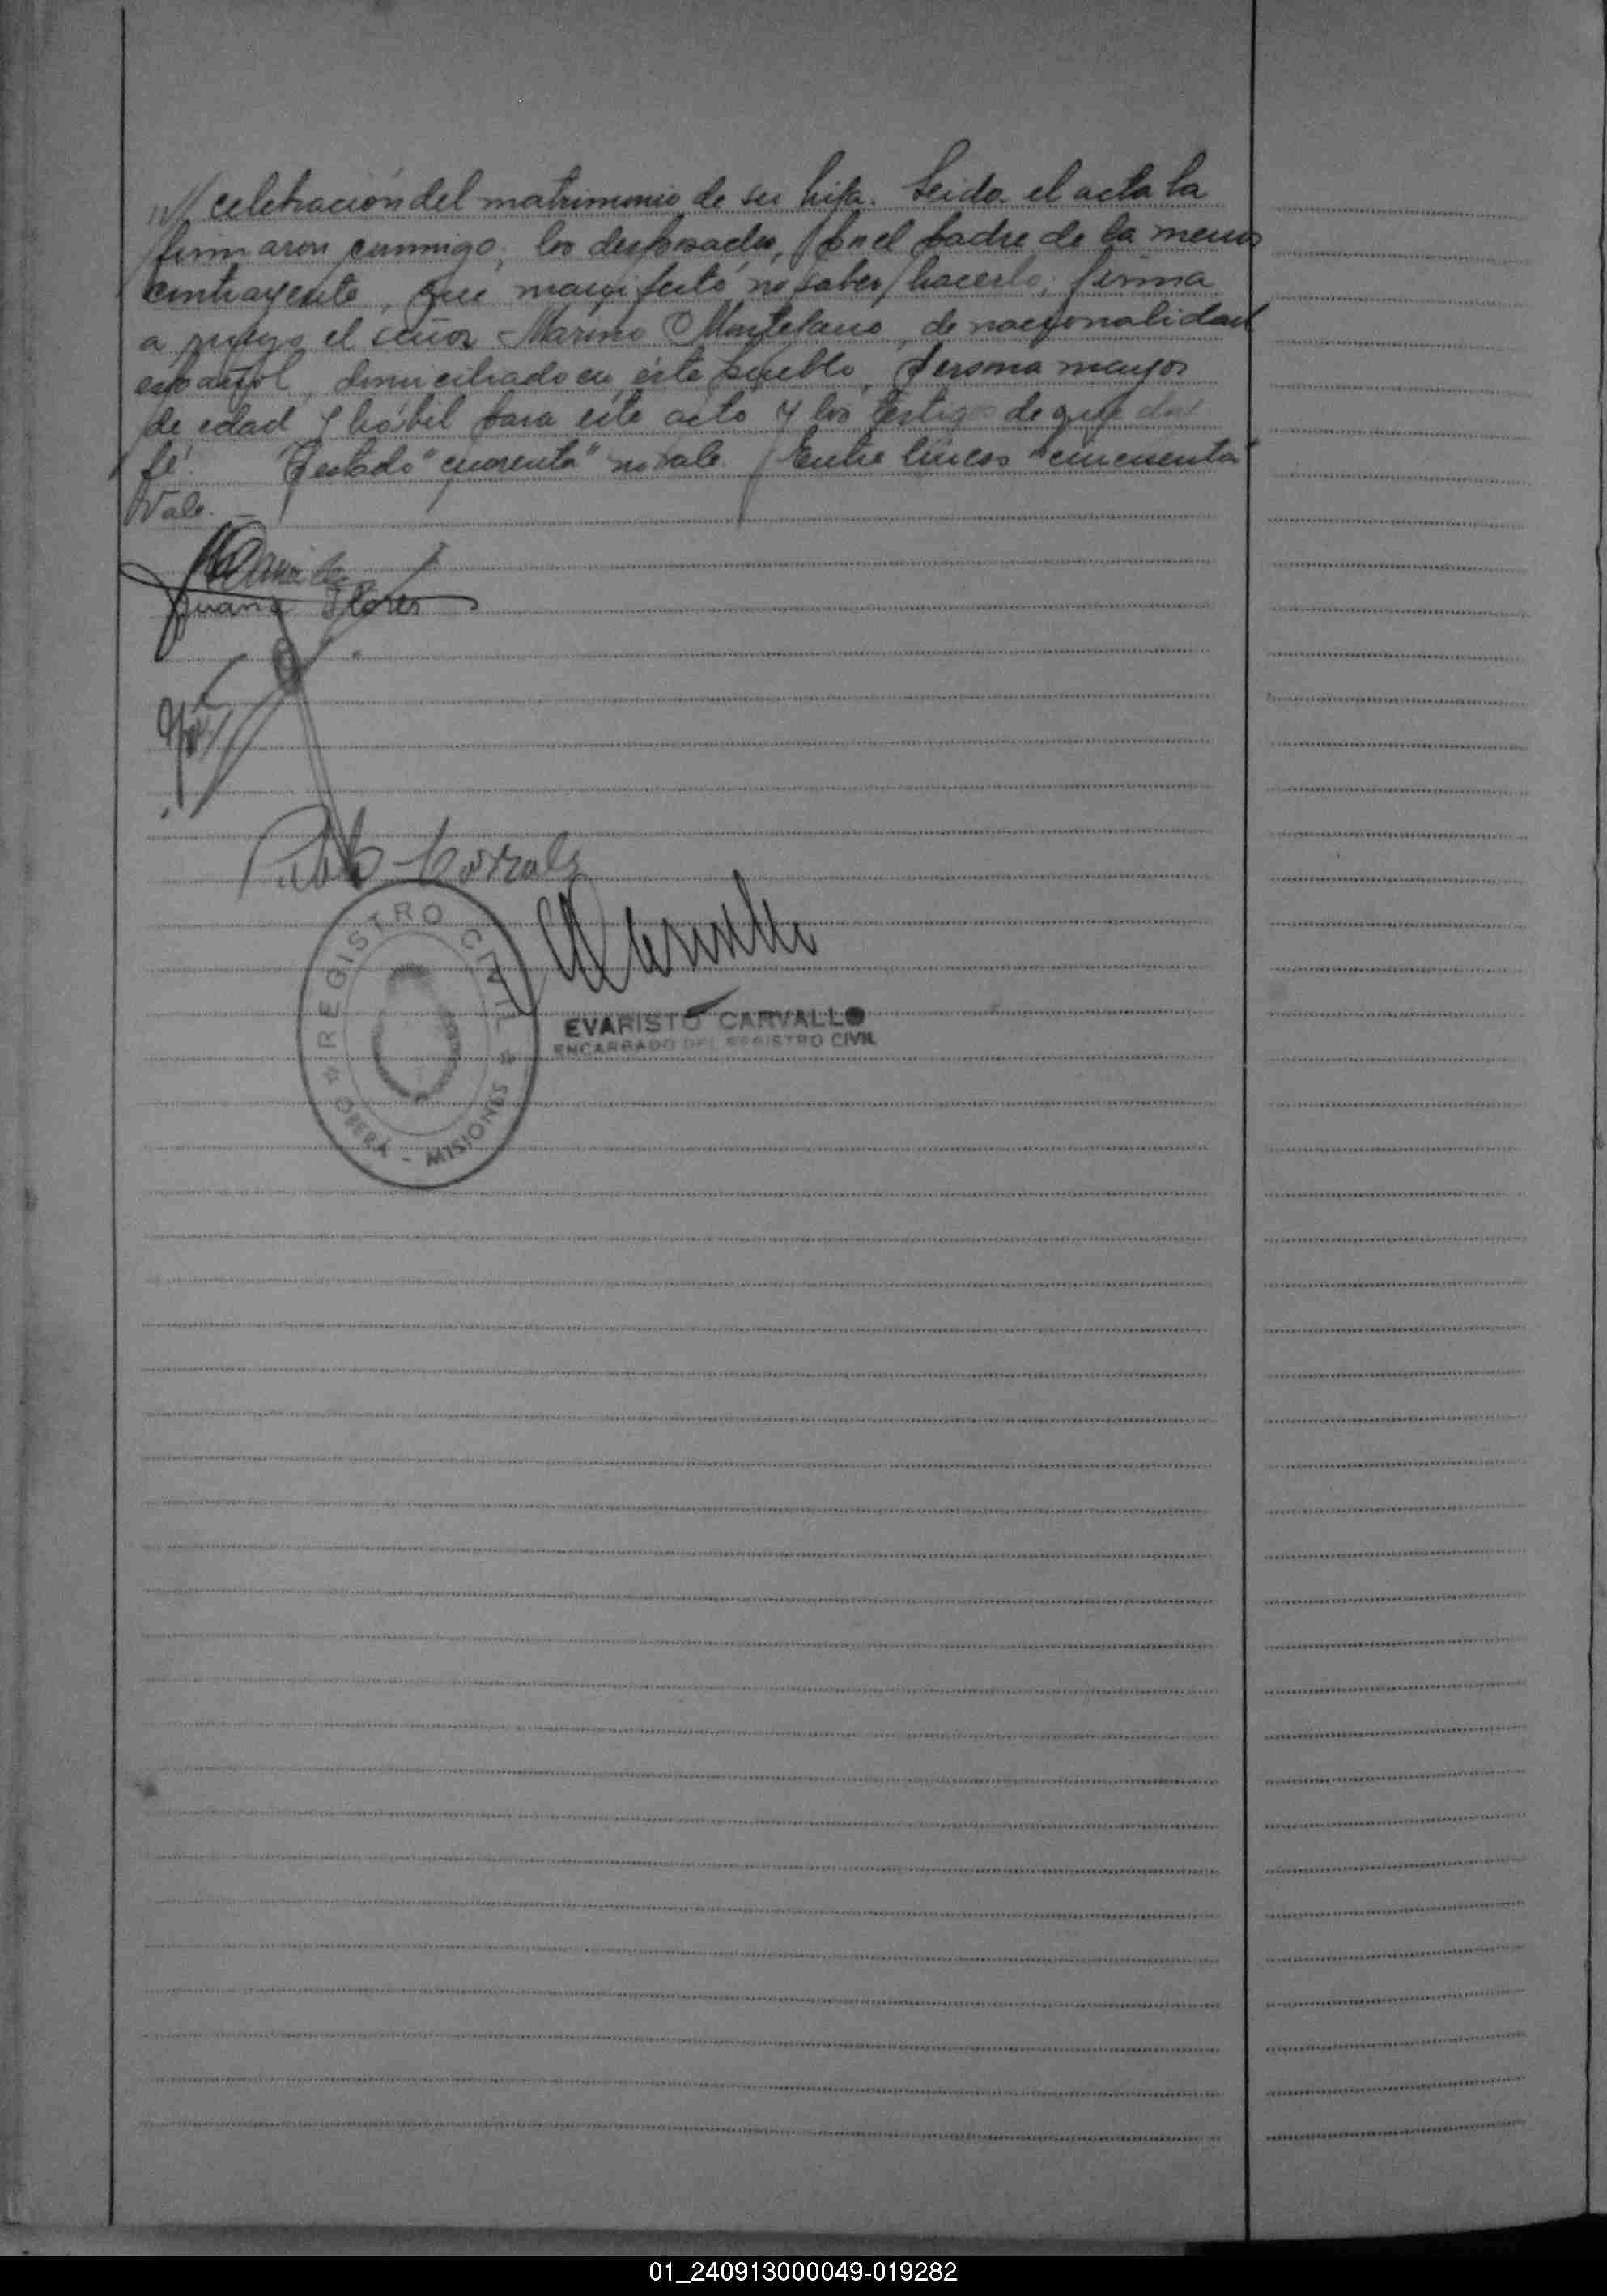 celebración del matrimonio de su hija. Leida el acta la
firmaron conmigo, los desposados, por el padre de la menor
contrayente, que manifestó no saber hacerlo, firma
a ruego el señor Marino Montelano, de nacionalidad
español, domiciliado en éste pueblo, persona mayor
de edad y hábil para este acto y los testigos de que doy
fé. Testado "cuarenta" no vale. Entre líneas "cincuenta"
Vale.
Juana Flores
REGISTRO CIVIL
OBERÁ - MISIONES
EVARISTO CARVALLO
ENCARGADO DEL REGISTRO CIVIL
01_240913000049-019282